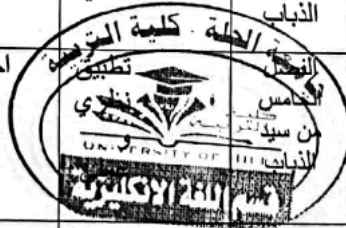 الذباب
الحلة . كلية التربية
الفصل
تطبيق
الخامس
نظري
من سيد
و
UNIVERSITY OF
الذباب
قسم اللغة الانكليزية